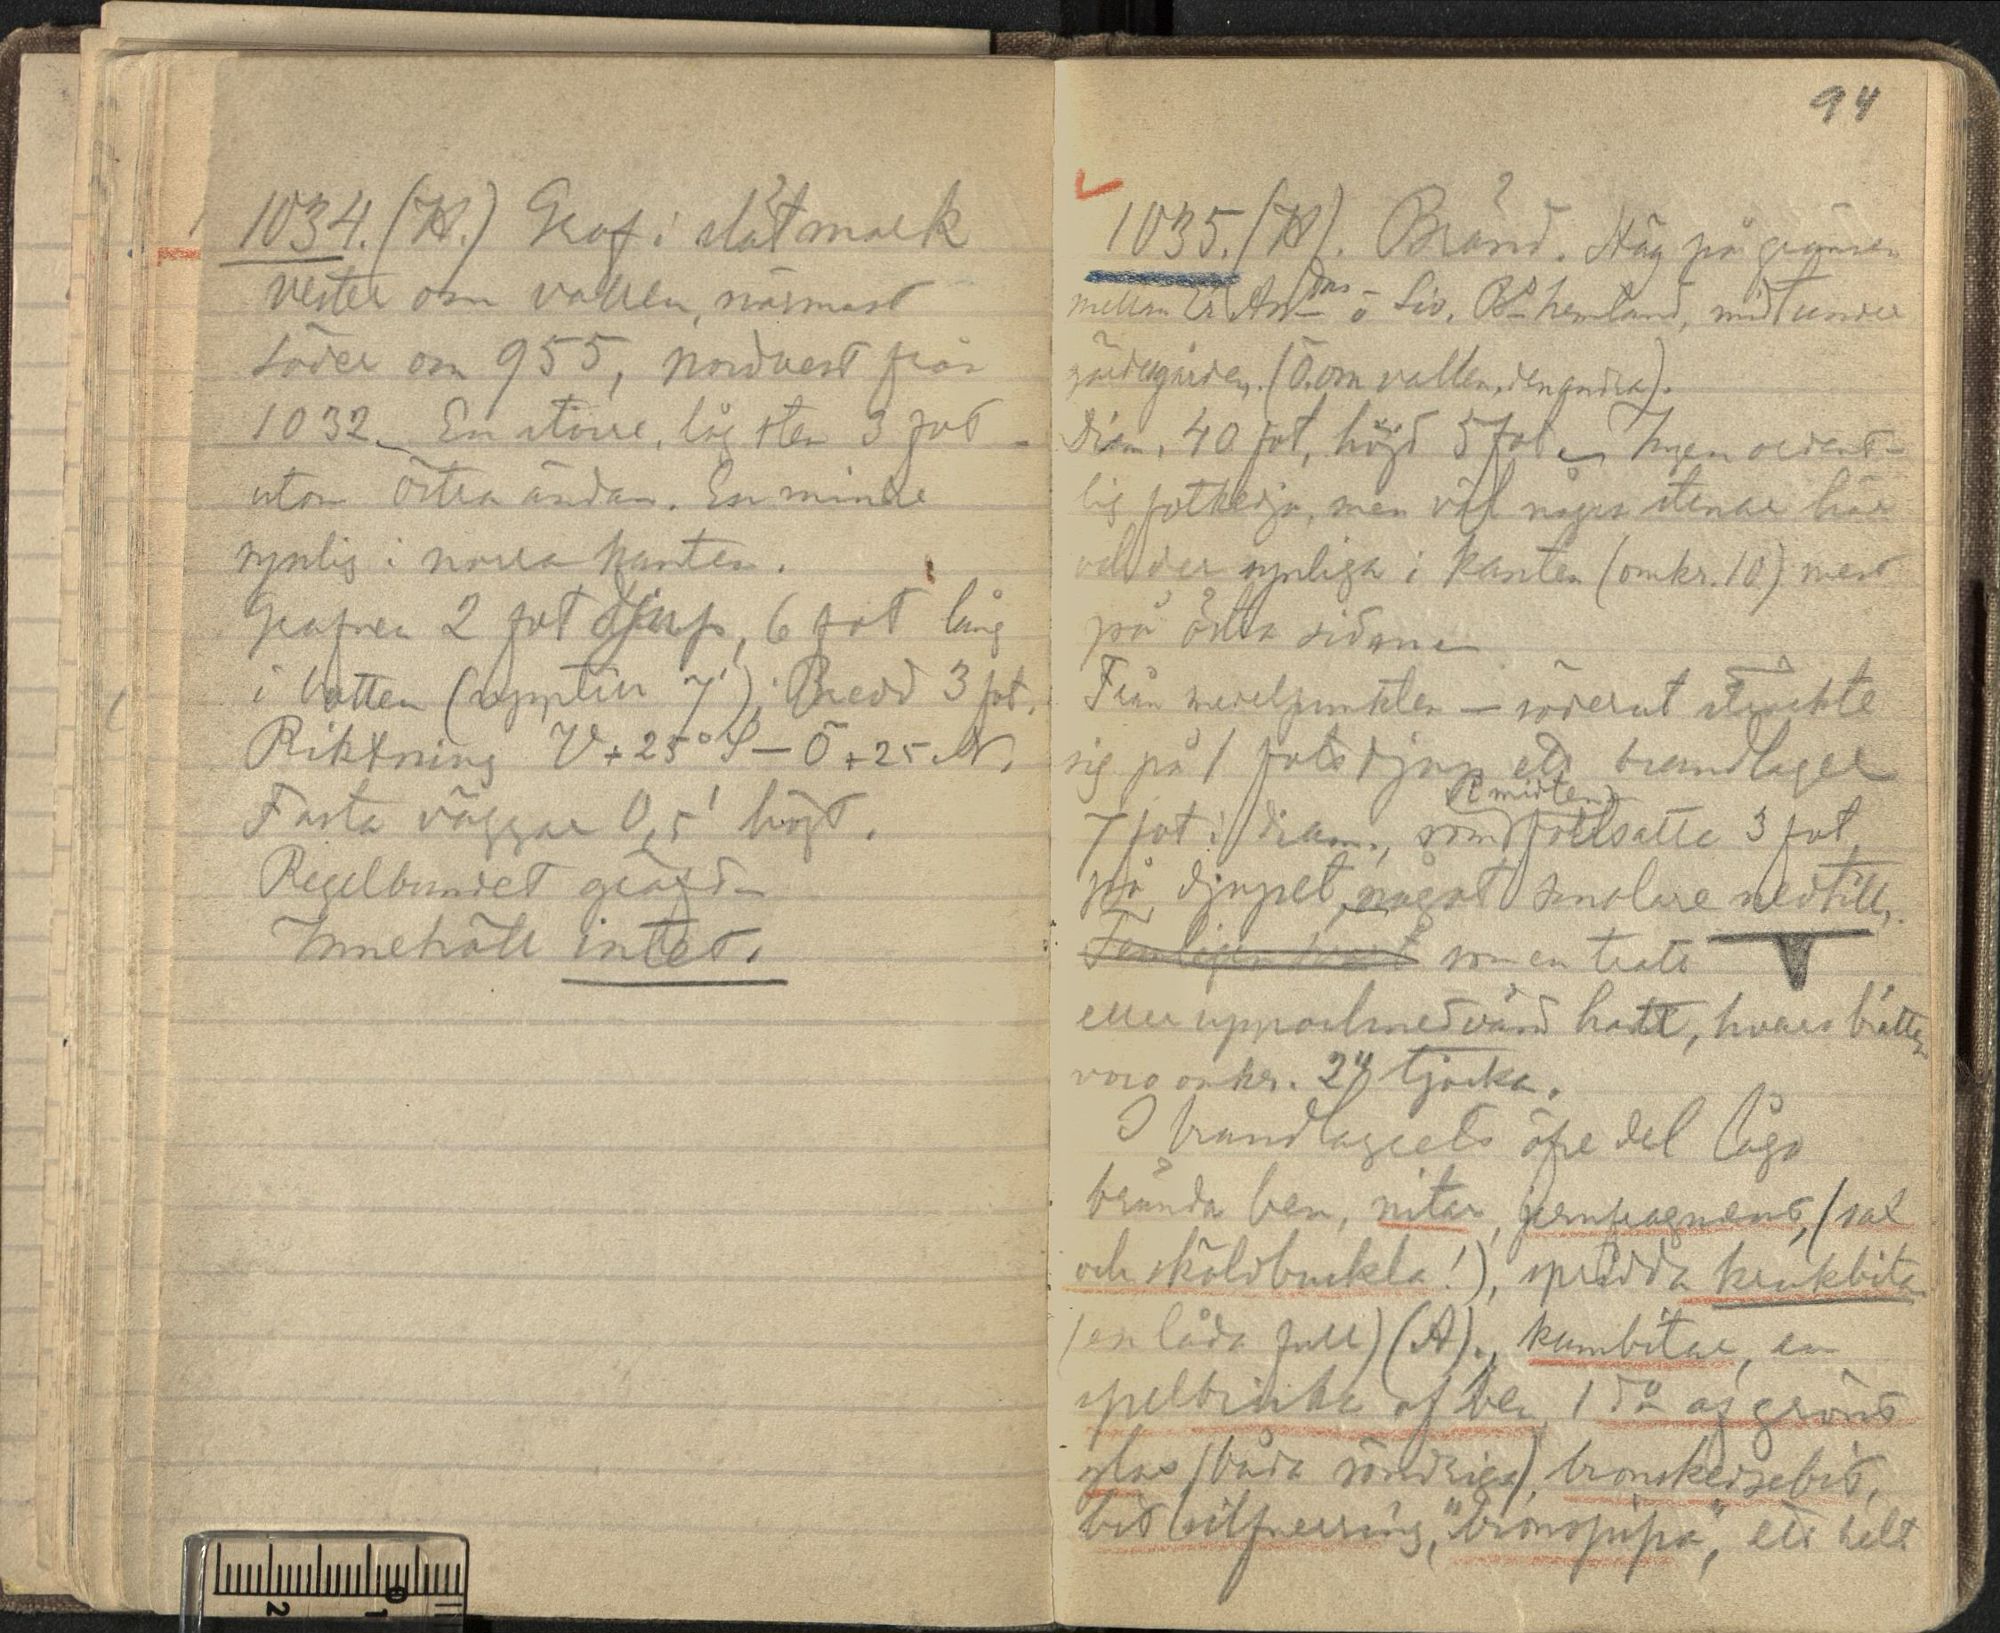 1034. (H.) Graf i slåtmark
vester om vallen, närmast
söder om 955, nordvest från
1032. En större, låg sten 3 fot
utom östra ändan. En mindre
synlig i norra kanten.
Grafven 2 fot djup, 6 fot lång
i botten (upptill 7'). Bredd 3 fot.
Riktning V+25°S – Ö+25 N.
Fasta väggar 0,5' högt.
Regelbundet gräfd
Innehöll intet.
94
1035. (H). Bränd. Hög på gränsen
mellan Er. And:s o. Siv. hemland, midt under
gärdesgården. (Ö. om vallen, den andra).
Diam. 40 fot, höjd 5 fot. Ingen ordent-
lig fotkedja, men väl några stenar här
och der synliga i kanten (omkr. 10) mest
på östra sidan
Från medelpunkten – söderut sträckte
sig på 1 fots djup ett brandlager
7 fot i diam., som i midten fortsatte 3 fot
på djupet, något smalare nedtill,
Temligen som en tratt
eller uppochnedvänd hatt, hvars brätten
voro omkr. 2" tjocka.
I brandlagrets öfre del lågo
brända ben, nitar, jernfragment, (sax
och sköldbuckla!), spridda krukbitar
(en låda full) (A)., kambitar, en
spelbricka af ben, 1 d:o af grönt
glas (båda söndriga), bronskedjebit,
bit silfverring, "bronspipa", ett helt